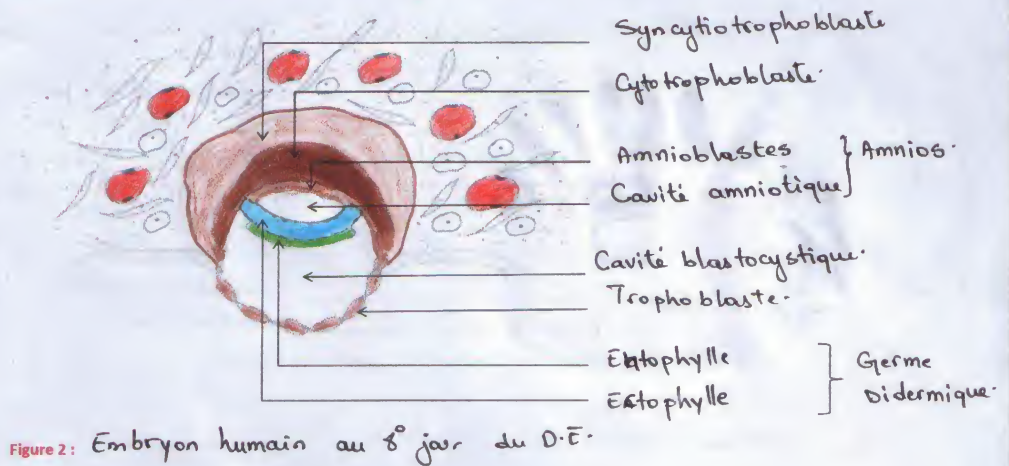 Syncytiotrophoblaste
Cytotrophoblaste.
Amnioblastes
Cavité amniotique
Amnios.
Cavité blastocystique.
Trophoblaste.
Entophylle
Ectophylle
Germe
Didermique.
Figure 2 : Embryon humain au 8° jour du D.E.